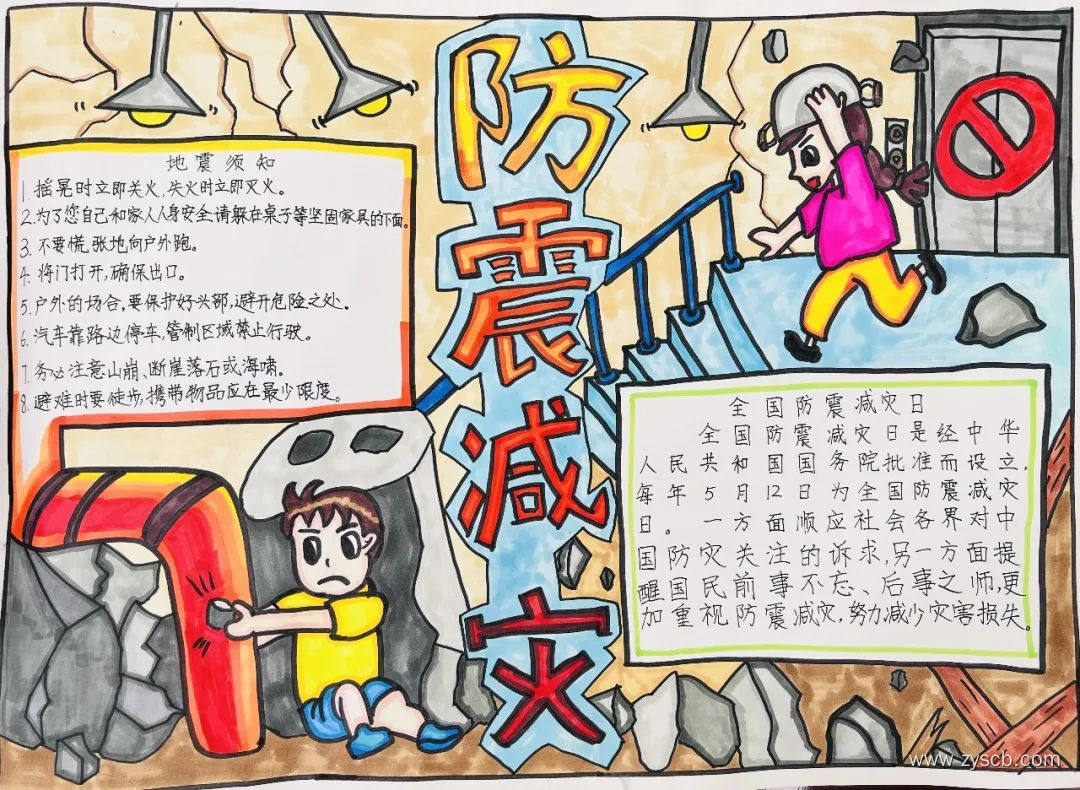 防震减灾
地震须知
1.摇晃时立即关火,失火时立即灭火。
2.为了您自己和家人人身安全请躲在桌子等坚固家具的下面。
3.不要慌张地向户外跑。
4.将门打开,确保出口。
5.户外的场合,要保护好头部,避开危险之处。
6.汽车靠路边停车,管制区域禁止行驶。
7.务必注意山崩、断崖落石或海啸。
8.避难时要徒步,携带物品应在最少限度。
全国防震减灾日
全国防震减灾日是经中华
人民共和国国务院批准而设立,
每年5月12日为全国防震减灾
日。一方面顺应社会各界对中
国防灾关注的诉求,另一方面提
醒国民前事不忘、后事之师,更
加重视防震减灾,努力减少灾害损失。
www.zyscb.com